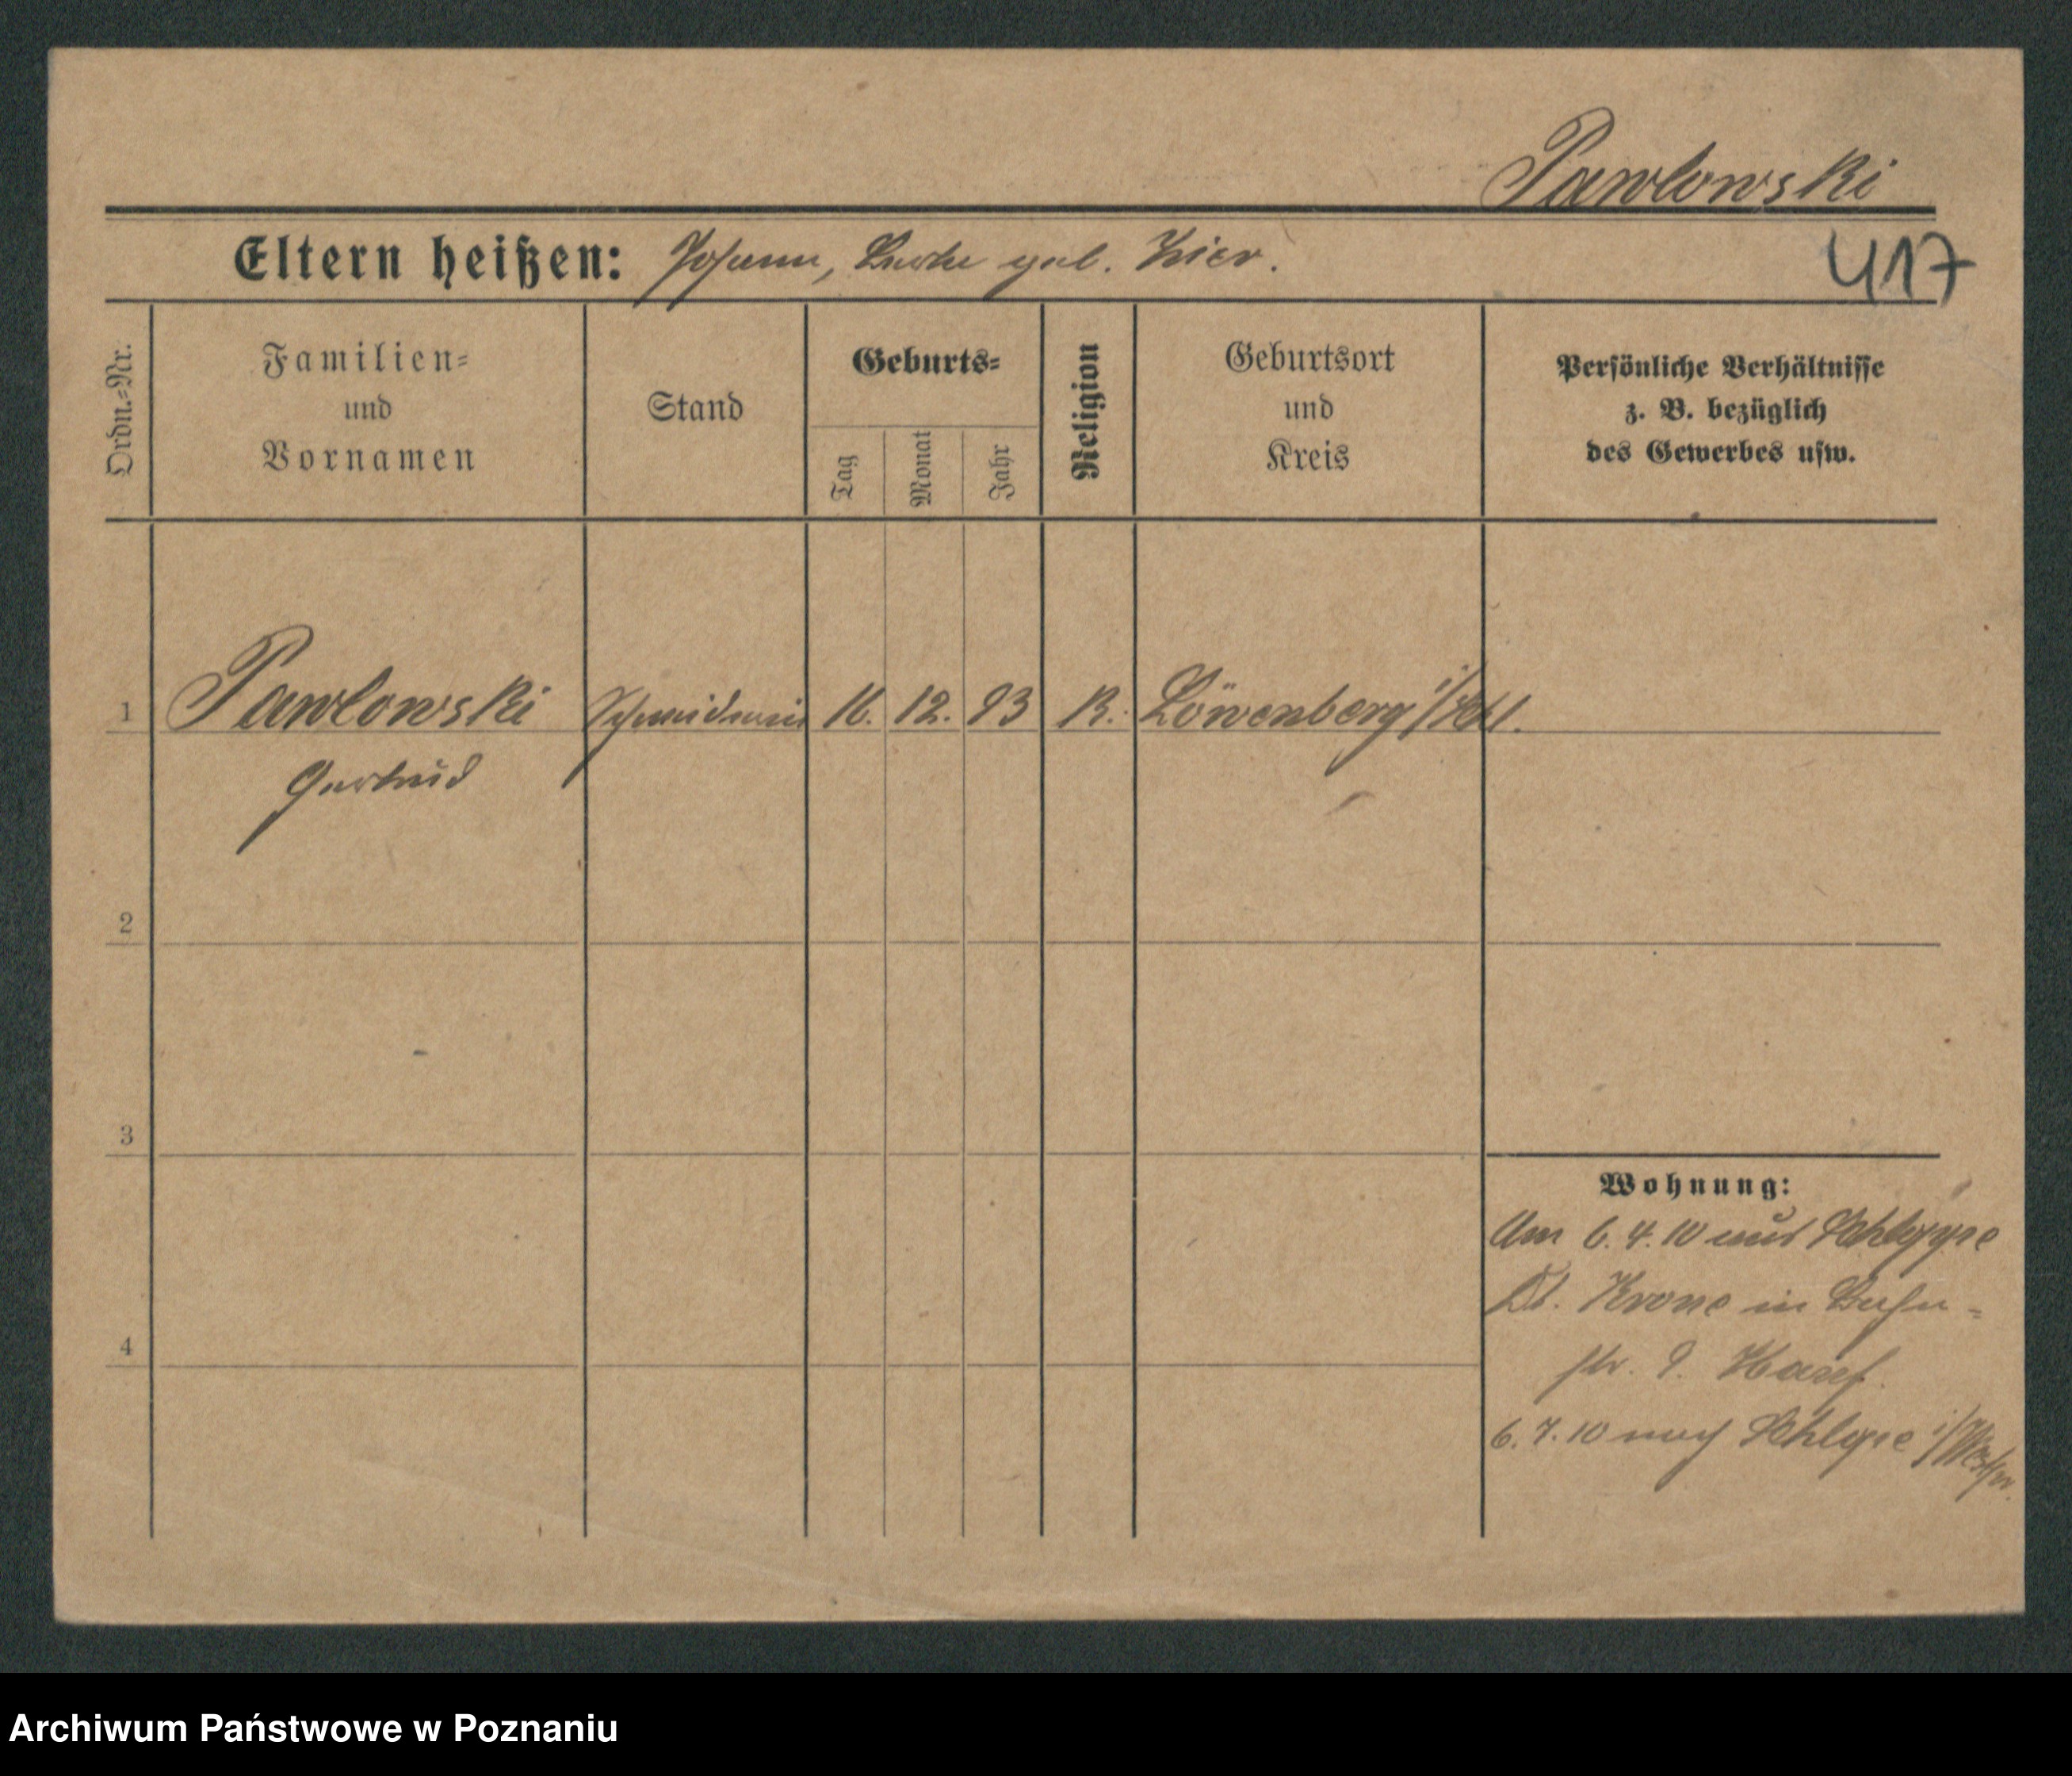 Pawlowski
Eltern heißen: Johann, geb. Hier.
417
Ordn.-Nr.
Familien=
und
Vornamen
Stand
Geburts=
Tag
Monat
Jahr
Religion
Geburtsort
und
Kreis
Persönliche Verhältnisse
z. B. bezüglich
des Gewerbes usw.
1 Pawlowski 12. 93 K. Löwenberg i/Schl.
Gertrud
2
3
4
Wohnung:
Am 6. 4. 10 aus Schloppe
Dt. Krone in Bahn=
str. 9. Hasef.
6. 7. 10 nach Schlope i/Westpr.
Archiwum Państwowe w Poznaniu